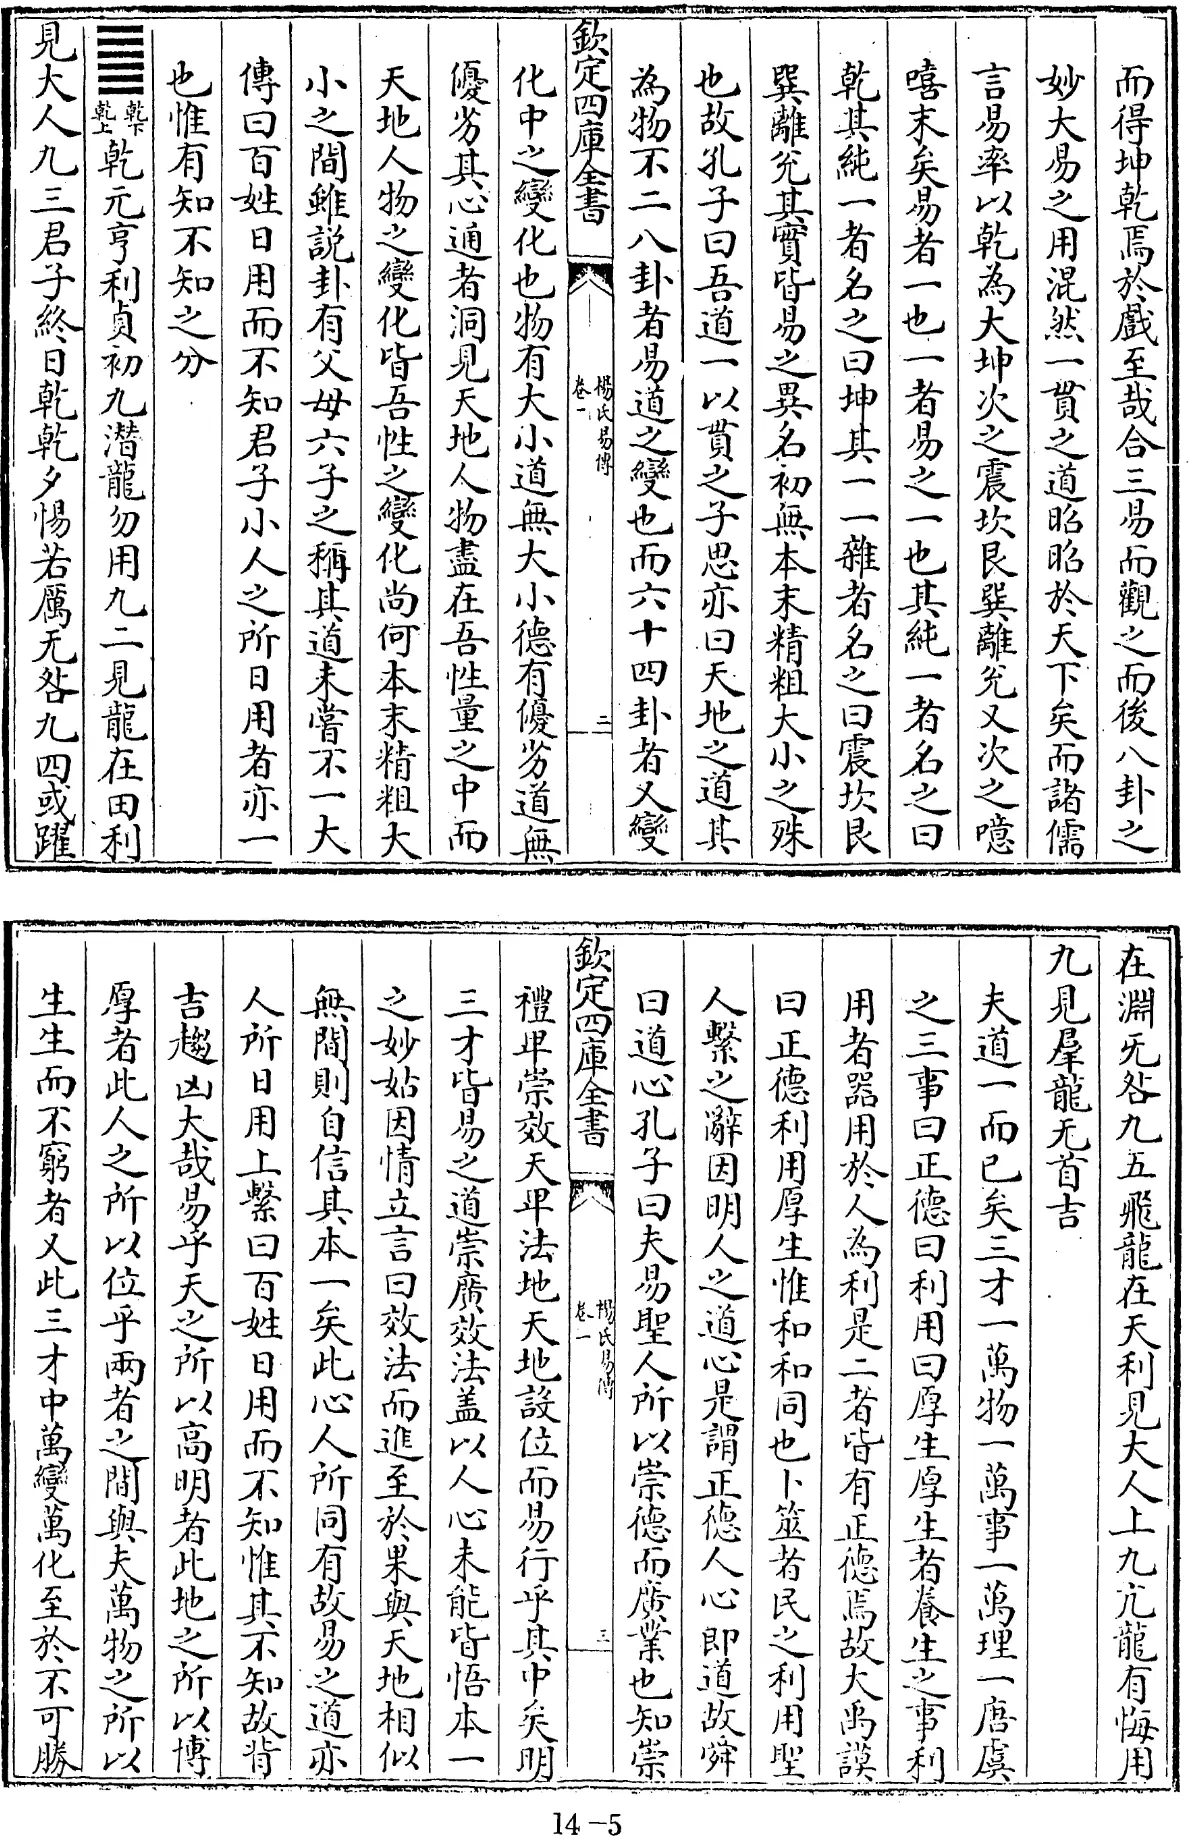 而得坤乾焉於戲至哉合三易而觀之而後八卦之
妙大易之用混然一貫之道昭昭於天下矣而諸儒
言易率以乾為大坤次之震坎艮巽離兊又次之噫
嘻末矣易者一也一者易之一也其純一者名之曰
乾其純一者名之曰坤其一一雜者名之曰震坎艮
巽離兊其實皆易之異名初無本末精粗大小之殊
也故孔子曰吾道一以貫之子思亦曰天地之道其
為物不二八卦者易道之變也而六十四卦者又變
欽定四庫全書
楊氏易傳
卷一
二
化中之變化也物有大小道無大小德有優劣道無
優劣其心通者洞見天地人物盡在吾性量之中而
天地人物之變化皆吾性之變化尚何本末精粗大
小之間雖説卦有父母六子之稱其道未嘗不一大
傳曰百姓日用而不知君子小人之所日用者亦一
也惟有知不知之分
䷀
乾下
乾上
乾元亨利貞初九潛龍勿用九二見龍在田利
見大人九三君子終日乾乾夕惕若厲无咎九四或躍
在淵无咎九五飛龍在天利見大人上九亢龍有悔用
九見羣龍无首吉
夫道一而已矣三才一萬物一萬事一萬理一唐虞
之三事曰正德曰利用曰厚生厚生者養生之事利
用者器用於人為利是二者皆有正德焉故大禹謨
曰正德利用厚生惟和和同也卜筮者民之利用聖
人繫之辭因明人之道心是謂正德人心即道故舜
曰道心孔子曰夫易聖人所以崇德而廣業也知崇
欽定四庫全書
楊氏易傳
卷一
三
禮卑崇效天卑法地天地設位而易行乎其中矣明
三才皆易之道崇廣效法盖以人心未能皆悟本一
之妙姑因情立言曰效法而進至於果與天地相似
無間則自信其本一矣此心人所同有故易之道亦
人所日用上繫曰百姓日用而不知惟其不知故背
吉趨凶大哉易乎天之所以高明者此地之所以博
厚者此人之所以位乎兩者之間與夫萬物之所以
生生而不窮者又此三才中萬變萬化至於不可勝
14-5